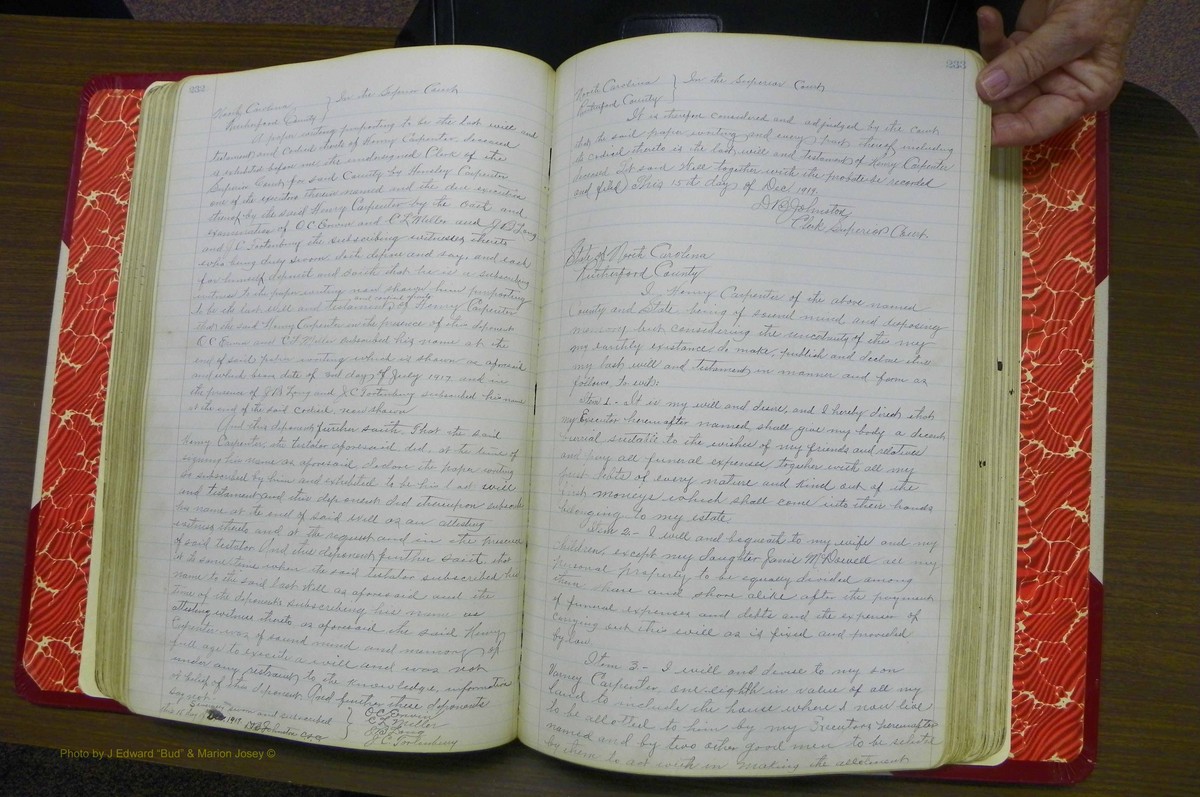 232
North Carolina } In the Superior Court
Rutherford County
A paper writing purporting to be the last will and
testament and Codicil thereto of Henry Carpenter deceased
is exhibited before me the undersigned Clerk of the
Superior Court for said County by Harvey Carpenter
one of the executors therein named and the due execution
thereof by the said Henry Carpenter by the oath and
examination of O.C. Erwin and C.L. Miller and J.B. Long
and J.C. Fortenbury the subscribing witnesses thereto
who being duly sworn doth depose and say, and each
for himself deposeth and saith that he is a subscribing
witness to the paper writing now shown him purporting
to be the last will and testament and codicil thereto of Henry Carpenter
that the said Henry Carpenter in the presence of this deponent
O.C. Erwin and C.L. Miller subscribed his name at the
end of said paper writing which is shown as aforesaid
and which bears date of day of July 1917 and in
the presence of J.B. Long and J.C. Fortenbury subscribed his name
at the end of the said codicil now shown
And this deponent further saith, That the said
Henry Carpenter the testator aforesaid did, at the time of
signing his name as aforesaid declare the paper writing
so subscribed by him and exhibited to be his last will
and testament and this deponent did thereupon subscribe
his name at the end of said will as an attesting
witness thereto and at the request and in the presence
of said testator And this deponent further saith that
at the same time when the said testator subscribed his
name to the said last will as aforesaid and the
time of the deponents subscribing his name as
attesting witness thereto as aforesaid the said Henry
Carpenter was of sound mind and memory of
full age to execute a will and was not
under any restraint to the knowledge, information
or belief of this deponent And further these deponents
say not
Severally sworn and subscribed } O.C. Erwin
this day of Dec 1919. C.L. Miller
Johnston CSC J.B. Long
J.C. Fortenbury
233
North Carolina } In the Superior Court
Rutherford County
It is therefore considered and adjudged by the court
that the said paper writing and every part thereof including
the codicil thereto is the last will and testament of Henry Carpenter
deceased Let said Will together with the probate be recorded
and filed This 15th day of Dec 1919.
Johnston
Clerk Superior Court
State of North Carolina
Rutherford County
I, Henry Carpenter of the above named
County and State being of sound mind and disposing
memory but considering the uncertainty of this my
my earthly existance do make, publish and declare this
my last will and testament in manner and form as
follows, to wit:
Item 1.- It is my will and desire, and I hereby direct that
my Executor hereinafter named shall give my body a decent
burial suitable to the wishes of my friends and relatives
and pay all funeral expenses together with all my
just debts of every nature and kind out of the
first moneys which shall come into their hands
belonging to my estate.
Item 2.- I will and bequeath to my wife and my
children, except my daughter Janie McDowell all my
personal property to be equally divided among
them share and share alike after the payment
of funeral expenses and debts and the expenses of
carrying out this will as is fixed and provided
by law.
Item 3.- I will and devise to my son
Harvey Carpenter, one-eighth in value of all my
land to include the house where I now live
to be allotted to him by my Executors hereinafter
named and by two other good men to be selected
by them to act with in making the allotment
Photo by J Edward "Bud" & Marion Josey ©